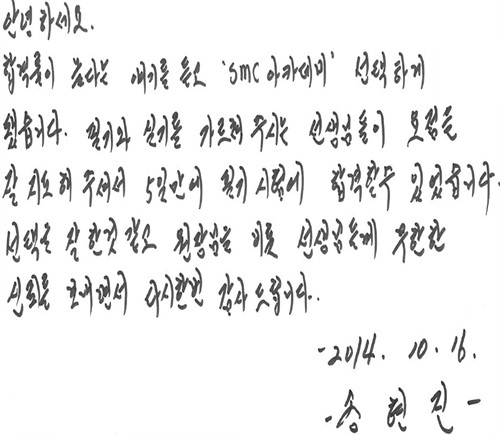 안녕하세요.
합격률이 높다는 얘기를 듣고 'SMC 아카데미' 선택하게
됐습니다. 필기와 실기를 가르쳐 주시는 선생님들이 요점을
잘 지도해 주셔서 5일만에 필기 시험에 합격할수 있었습니다.
선택을 잘 한것 같고 원장님을 비롯 선생님들께 무한한
신뢰를 보내면서 다시한번 감사 드립니다.
-2014. 10. 16.
-송 현 진-